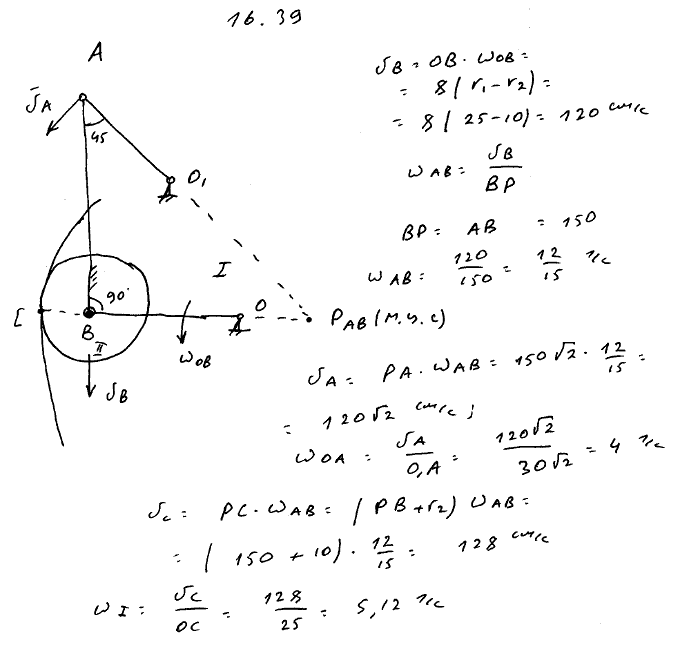 16.39
A
v̄A
45
O₁
I
C
90°
B
II
O
ωOB
vB
PAB (м.ц.с)
vB = OB · ωOB =
= 8 ( r₁ - r₂ ) =
= 8 ( 25 - 10 ) = 120 см/с
ωAB = vB / BP
BP = AB = 150
ωAB = 120 / 150 = 12 / 15 1/с
vA = PA · ωAB = 150√2 · 12 / 15 =
= 120√2 см/с ;
ωOA = vA / O₁A = 120√2 / 30√2 = 4 1/с
vc = PC · ωAB = ( PB + r₂ ) ωAB =
= ( 150 + 10 ) · 12 / 15 = 128 см/с
ωI = vC / OC = 128 / 25 = 5,12 1/с